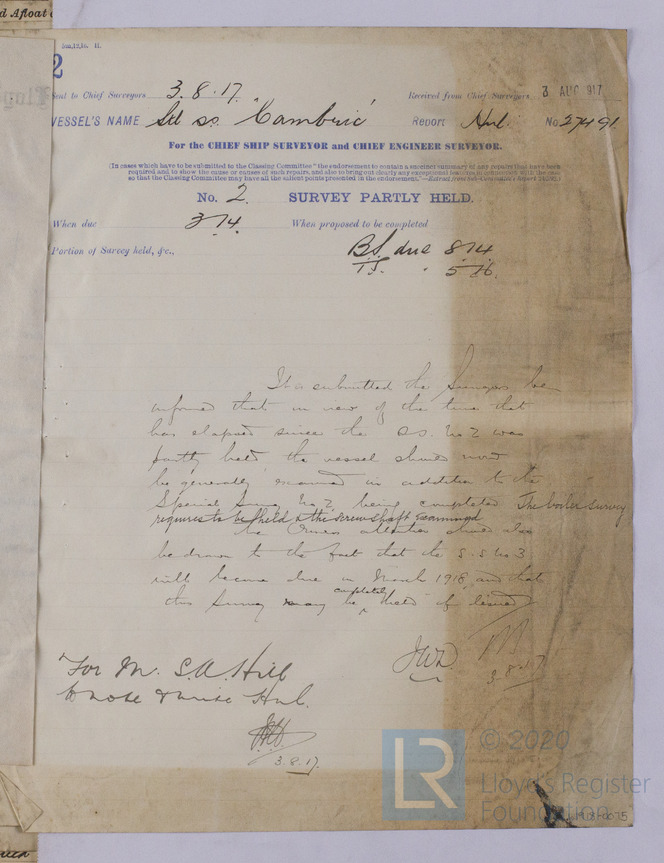 d Afloat
2
Sent to Chief Surveyors 3.8.17. Received from Chief Surveyors 3 AUG 917
VESSEL'S NAME Stl ss. "Cambric" Report Hul. No. 27491
For the CHIEF SHIP SURVEYOR and CHIEF ENGINEER SURVEYOR.
(In cases which have to be submitted to the Classing Committee "the endorsement to contain a succinct summary of any repairs that have been
required and to show the cause or causes of such repairs, and also to bring out clearly any exceptional in connection with the case
so that the Classing Committee may have all the salient points presented in the endorsement."
No. 2. SURVEY PARTLY HELD.
When due 3.14. When proposed to be completed
Portion of Survey held, &c., BS. due 8.14
TS. " 5.16.
It is submitted the Surveyors be
informed that in view of the time that
has elapsed since the SS. No 2 was
partly held, the vessel should now
be generally examined in addition to the
Special Survey No 2 being completed The boiler survey
requires to be held & the screwshaft examined
The Owners attention should also
be drawn to the fact that the S.S. No 3
will become due in March 1918 and that
this Survey may be completely held if desired
JWD. 3.8.17
For Mr. S.A. Hill
to note & advise Hul.
3.8.17.
LR © 2020
Lloyd's Register
Foundation